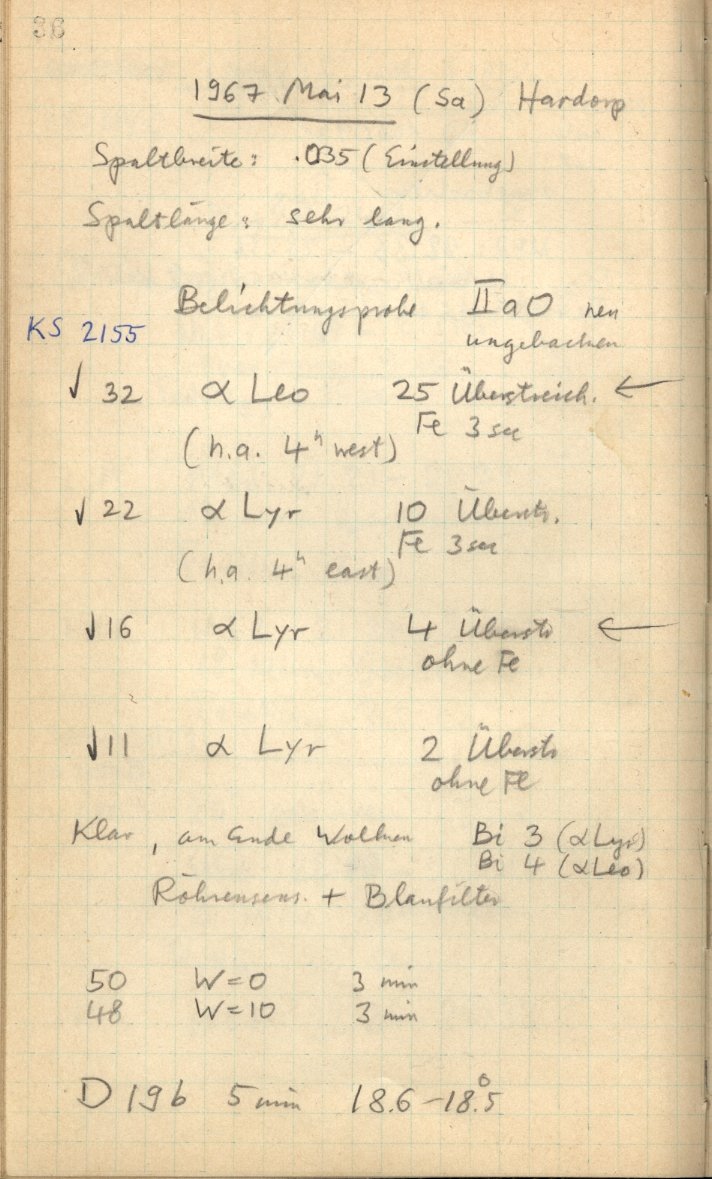 36
1967 Mai 13 (Sa) Hardorp
Spaltbreite: .035 (Einstellung)
Spaltlänge: sehr lang.
Belichtungsprobe IIaO neu
ungebacken
KS 2155
√ 32 α Leo 25 Überstreich. ←
Fe 3 sec
(h.a. 4h west)
√ 22 α Lyr 10 Überstr.
Fe 3 sec
(h.a. 4h east)
√ 16 α Lyr 4 Überstr ←
ohne Fe
√ 11 α Lyr 2 Überstr
ohne Fe
Klar, am Ende Wolken Bi 3 (α Lyr)
Bi 4 (α Leo)
Röhrensens. + Blaufilter
50 W=0 3 min
48 W=10 3 min
D 19b 5 min 18.6-18.°5